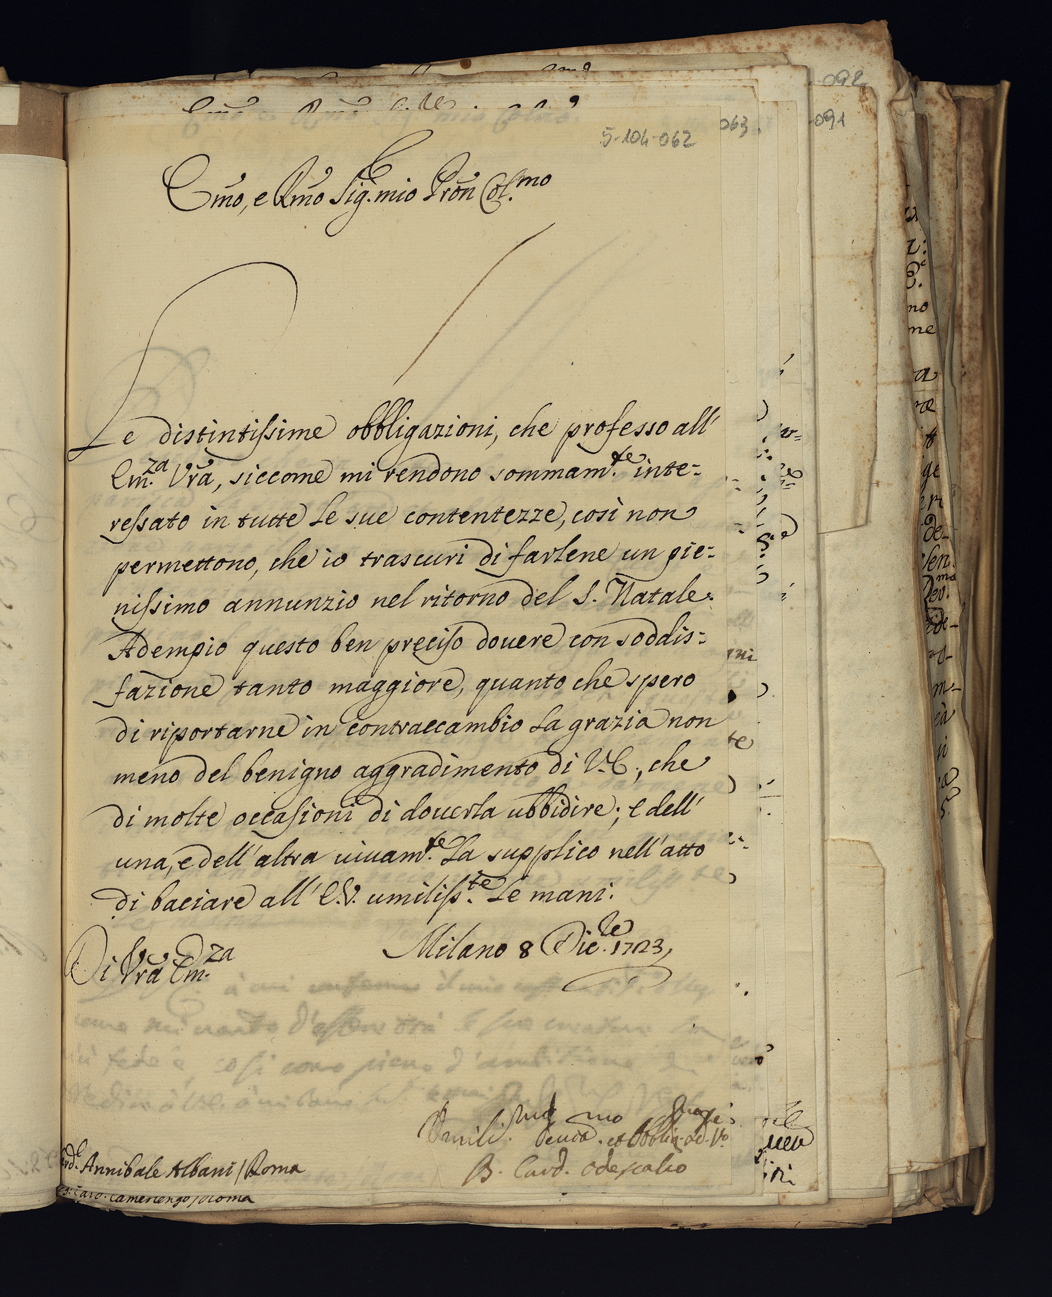 5-104-062
063
091
092
Em̃o, e Rm̃o Sig. mio Pron̄ Col.mo
Le distintissime obbligazioni, che professo all'
Em.za Vr̃a, siccome mi rendono sommam.te inte=
ressato in tutte le sue contentezze, così non
permettono, che io trascuri di farlene un pie=
nissimo annunzio nel ritorno del S. Natale.
Adempio questo ben preciso douere con soddis=
fazione tanto maggiore, quanto che spero
di riportarne in contraccambio la grazia non
meno del benigno aggradimento di V.E., che
di molte occasioni di douerla ubbidire; e dell'
una, e dell'altra uiuam.te La supplico nell'atto
di baciare all'E.V. umiliss.te le mani.
Di Vr̃a Em.za
Milano 8 Dic.le 1723,
B. Card. Odescalco
Card. Annibale Albani / Roma
Card. Camerlengo / Roma